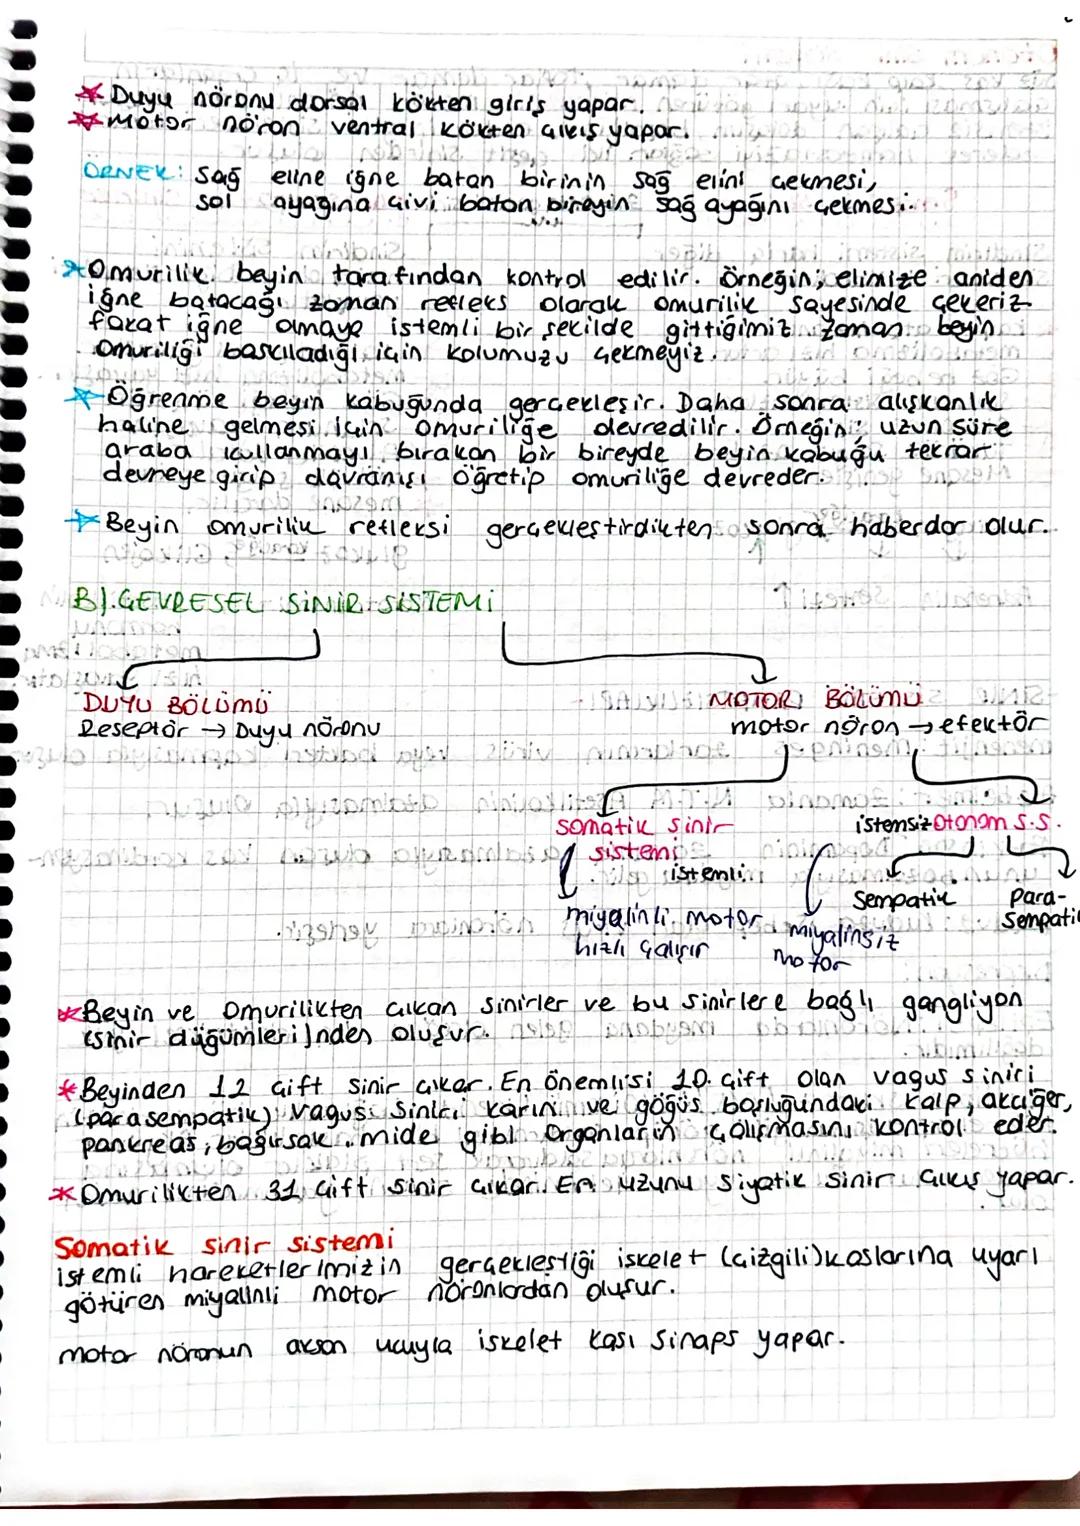 Duyu nöronu dorsal kökten giriş yapar.
Motor nöron ventral kökten çıkış yapar.
ÖRNEK: Sağ eline iğne batan birinin sağ elini çekmesi,
sol ayağına çivi batan bireyin sağ ayağını çekmesi...
Omurilik beyin tarafından kontrol edilir. Örneğin; elimize aniden
iğne batacağı zaman refleks olarak omurilik sayesinde çekeriz
fakat iğne olmaya istemli bir şekilde gittiğimiz zaman beyin
omuriliği baskıladığı için kolumuzu çekmeyiz.
Öğrenme beyin kabuğunda gerçekleşir. Daha sonra alışkanlık
haline gelmesi için omuriliğe devredilir. Örneğin; uzun süre
araba kullanmayı bırakan bir bireyde beyin kabuğu tekrar
devreye girip davranışı öğretip omuriliğe devreder.
Beyin omurilik refleksi gerçekleştirdikten sonra haberdar olur.
B) ÇEVRESEL SİNİR SİSTEMİ
DUYU BÖLÜMÜ
Reseptör → Duyu nöronu
MOTOR BÖLÜMÜ
motor nöron → efektör
somatik sinir
sistemi
istemli
miyalinli motor
hızlı çalışır
istemsiz otonom s.s.
miyalinsiz
motor
Sempatik
Para-
Sempatik
Beyin ve Omurilikten çıkan sinirler ve bu sinirlere bağlı gangliyon
(sinir düğümleri)nden oluşur.
Beyinden 12 çift sinir çıkar. En önemlisi 10. çift olan vagus siniri
(parasempatik) Vagus siniri karın ve göğüs boşluğundaki kalp, akciğer,
pankreas, bağırsak, mide gibi organların çalışmasını kontrol eder.
Omurilikten 31 çift sinir çıkar. En uzunu siyatik sinir çıkış yapar.
Somatik sinir sistemi
istemli hareketlerimizin gerçekleştiği iskelet (çizgili) kaslarına uyarı
götüren miyalinli motor nöronlardan oluşur.
motor nöronun akson ucuyla iskelet kası sinaps yapar.